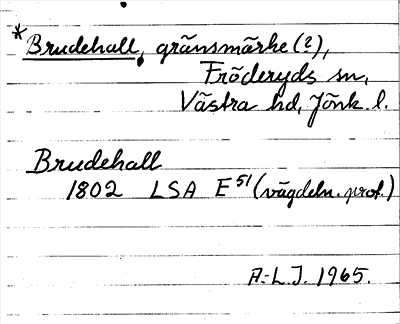 * Brudehall, gränsmärke (?),
Fröderyds sn,
Västra hd, Jönk. l.
Brudehall
1802 LSA E 51 (vägdeln. prot.)
A.-L.J. 1965.